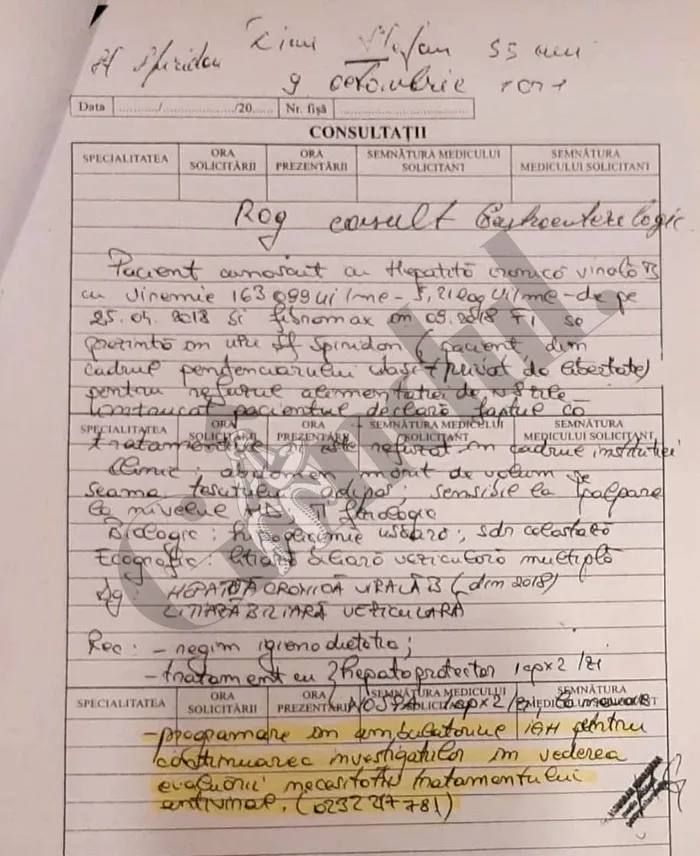 Sf Spiridon Ștefan 53 ani
9 octombrie
Data ......../......../20...... Nr. fișă
CONSULTAȚII
SPECIALITATEA ORA SOLICITĂRII ORA PREZENTĂRII SEMNĂTURA MEDICULUI SOLICITANT SEMNĂTURA MEDICULUI SOLICITANT
Rog consult Gastroenterologic
Pacient cunoscut cu Hepatită cronică virală B
cu viremie 163099 ui/ml - 5,21 log ui/ml - de pe
25.04.2018 si fibromax in 09.2018 F1 se
prezintă in UPU Sf Spiridon (pacient din
cadrul penitenciarului Iasi (privat de libertate)
pentru refuzul alimentatiei de zile
pacientul declară faptul că
SPECIALITATEA ORA SOLICITĂRII ORA PREZENTĂRII SEMNĂTURA MEDICULUI SOLICITANT SEMNĂTURA MEDICULUI SOLICITANT
tratamentul ii este refuzat in cadrul institutiei
Clinic: abdomen mărit de volum pe
seama tesutului adipos, sensibil la palpare
la nivelul HD
Biologic: hipoglicemie usoară; sdr colestatic
Ecografic: litiază biliară veziculară multiplă
Dg: HEPATITĂ CRONICĂ VIRALĂ B (din 2018)
LITIAZĂ BILIARĂ VEZICULARĂ
Rec: - regim igienodietetic;
- tratament cu hepatoprotector 1cpx2/zi
SPECIALITATEA ORA SOLICITĂRII ORA PREZENTĂRII SEMNĂTURA MEDICULUI SOLICITANT SEMNĂTURA MEDICULUI SOLICITANT
NOSPA 1cpx2/zi, la nevoie
- programare in ambulatoriul IGH pentru
continuarea investigatiilor in vederea
evaluării necesitatii tratamentului
antiviral. (0232 217 781)